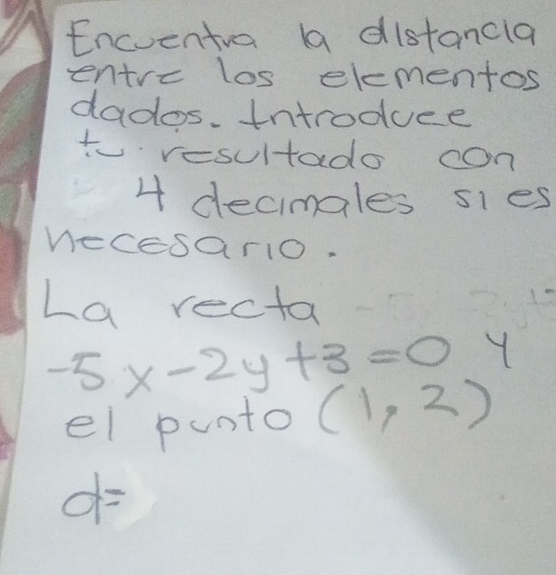 Encuentra la distancia
entre los elementos
dados. Introducee
tu resultado con
4 decimales si es
necesario.
La recta
-5x-2y+3=0 y
el punto (1,2)
d=